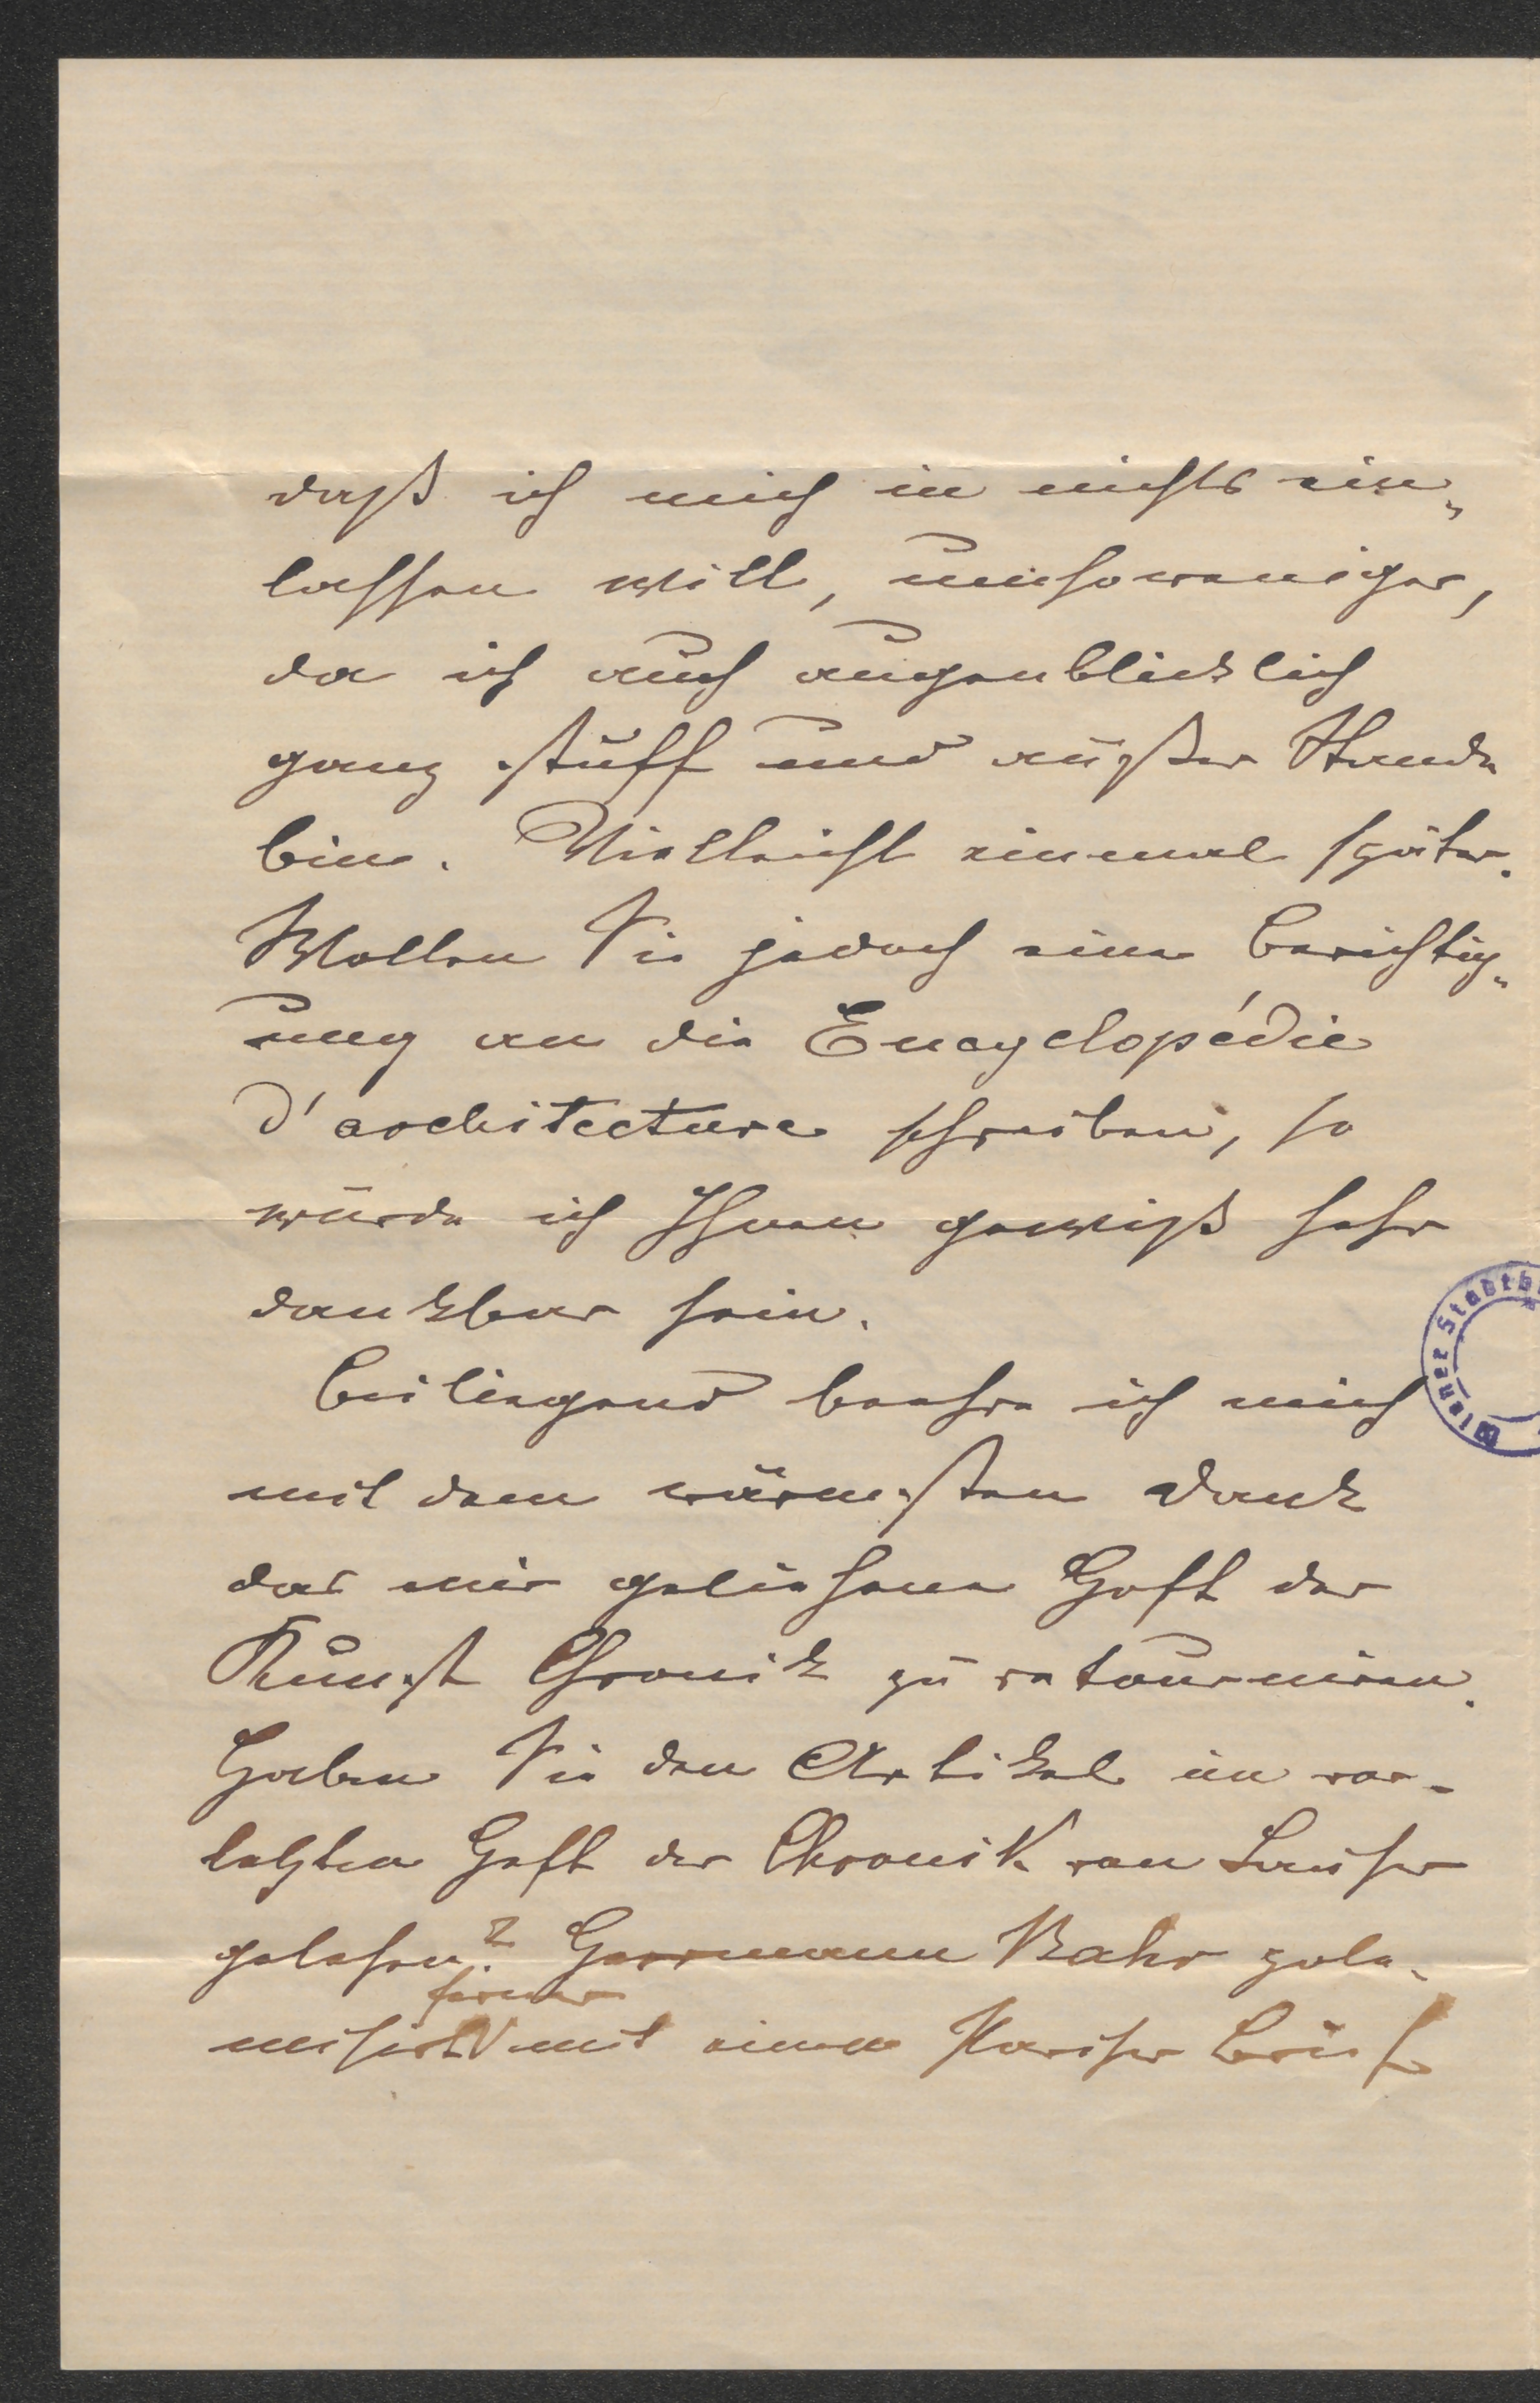 daß ich mich in nichts ein„
lassen will, umsoweniger,
da ich auch augenblicklich
ganz stuff und außer Stande
bin. Vielleicht einmal später.
Wollen Sie jedoch eine Berichtig„
ung an die Encyclopédie
d'architecture schreiben, so
würde ich Ihnen gewiß sehr
dankbar sein.
Beiliegend beehre ich mich
mit dem wärmsten Dank
das mir geliehene Heft der
Kunst Chronik zu retourniren.
Haben Sie den Artikel im vor-
letzten Heft der Chronik von Lauser
gelesen? Herrmann Bahr zola-
ferner
nisirt mit einem Pariser Brief
Wiener Stadtb